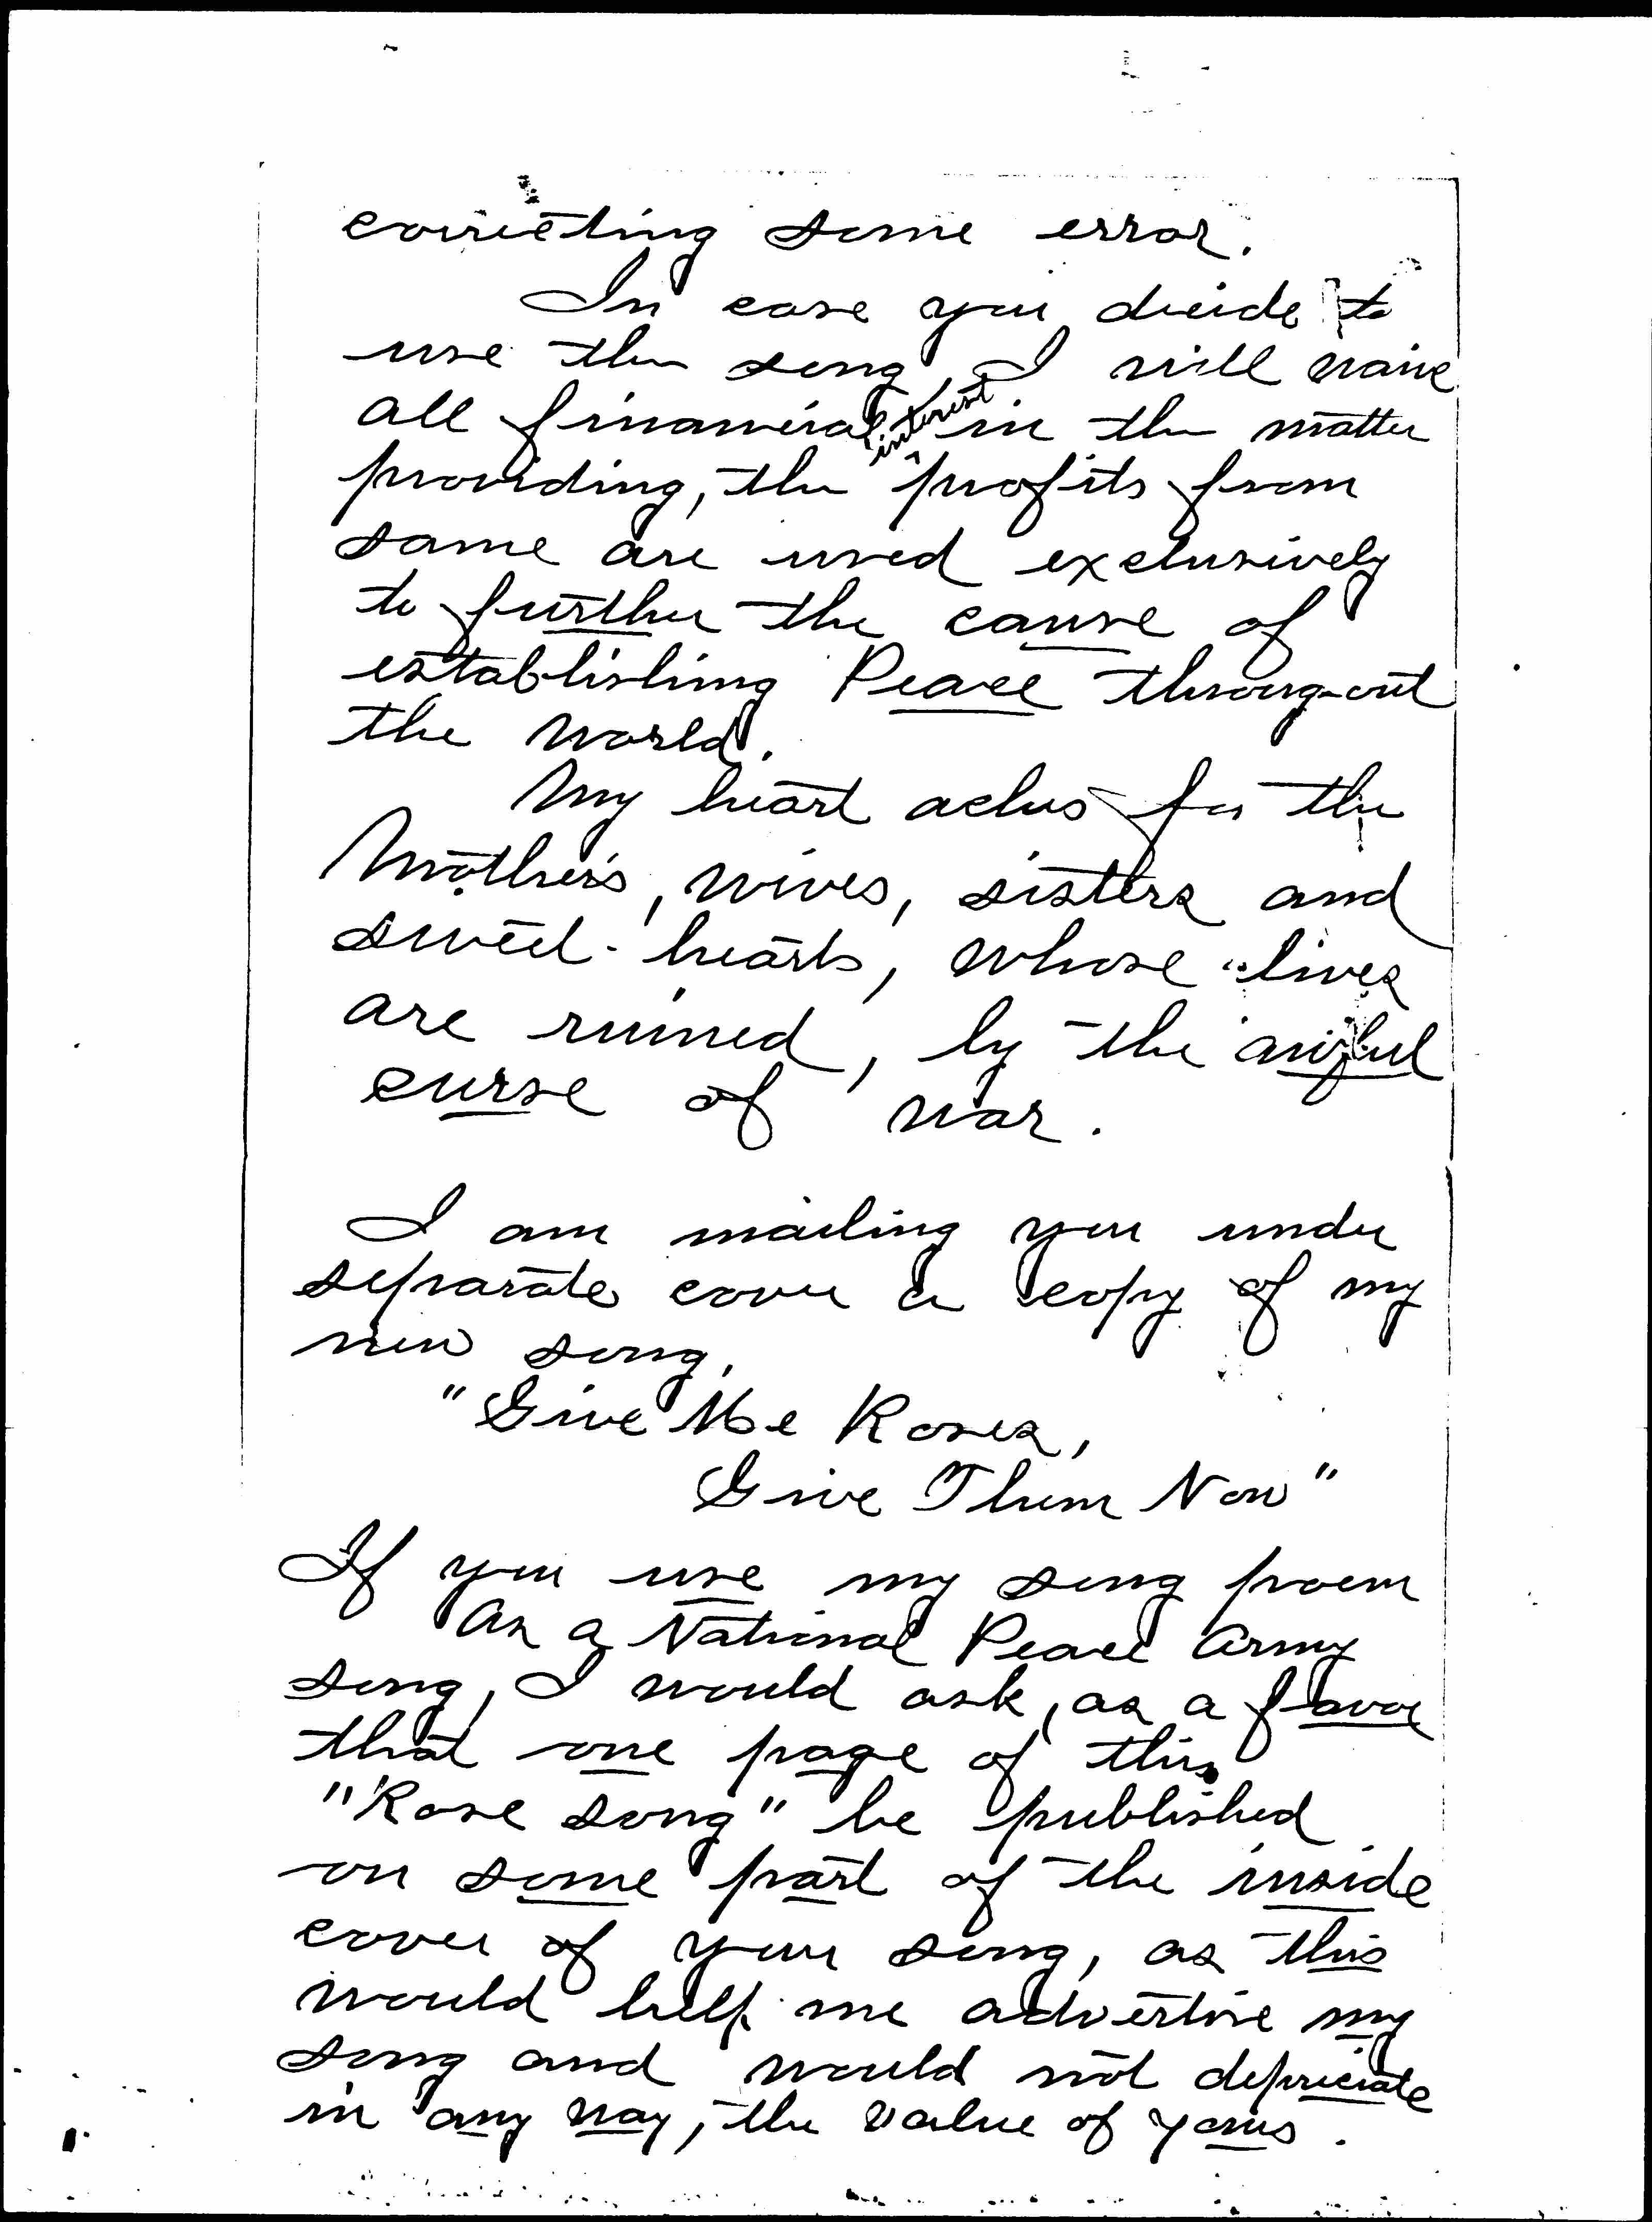 correcting some error.
In case you decide to
use the song, I will waive
all financial interest in the matter
providing, the profits from
same are used exclusively
to further the cause of
establishing Peace throug-out
the world.
My heart aches for the
Mothers, wives, sisters and
sweet-hearts, whose lives
are ruined, by the awful
curse of war.
I am mailing you under
separate cover a copy of my
new song,
"Give Me Roses,
Give Them Now"
If you use my song poem
as a National Peace Army
song, I would ask, as a favor
that one page of this
"Rose song" be published
on some part of the inside
cover of your song, as this
would help me advertise my
song and would not depreciate
in any way, the value of yours.